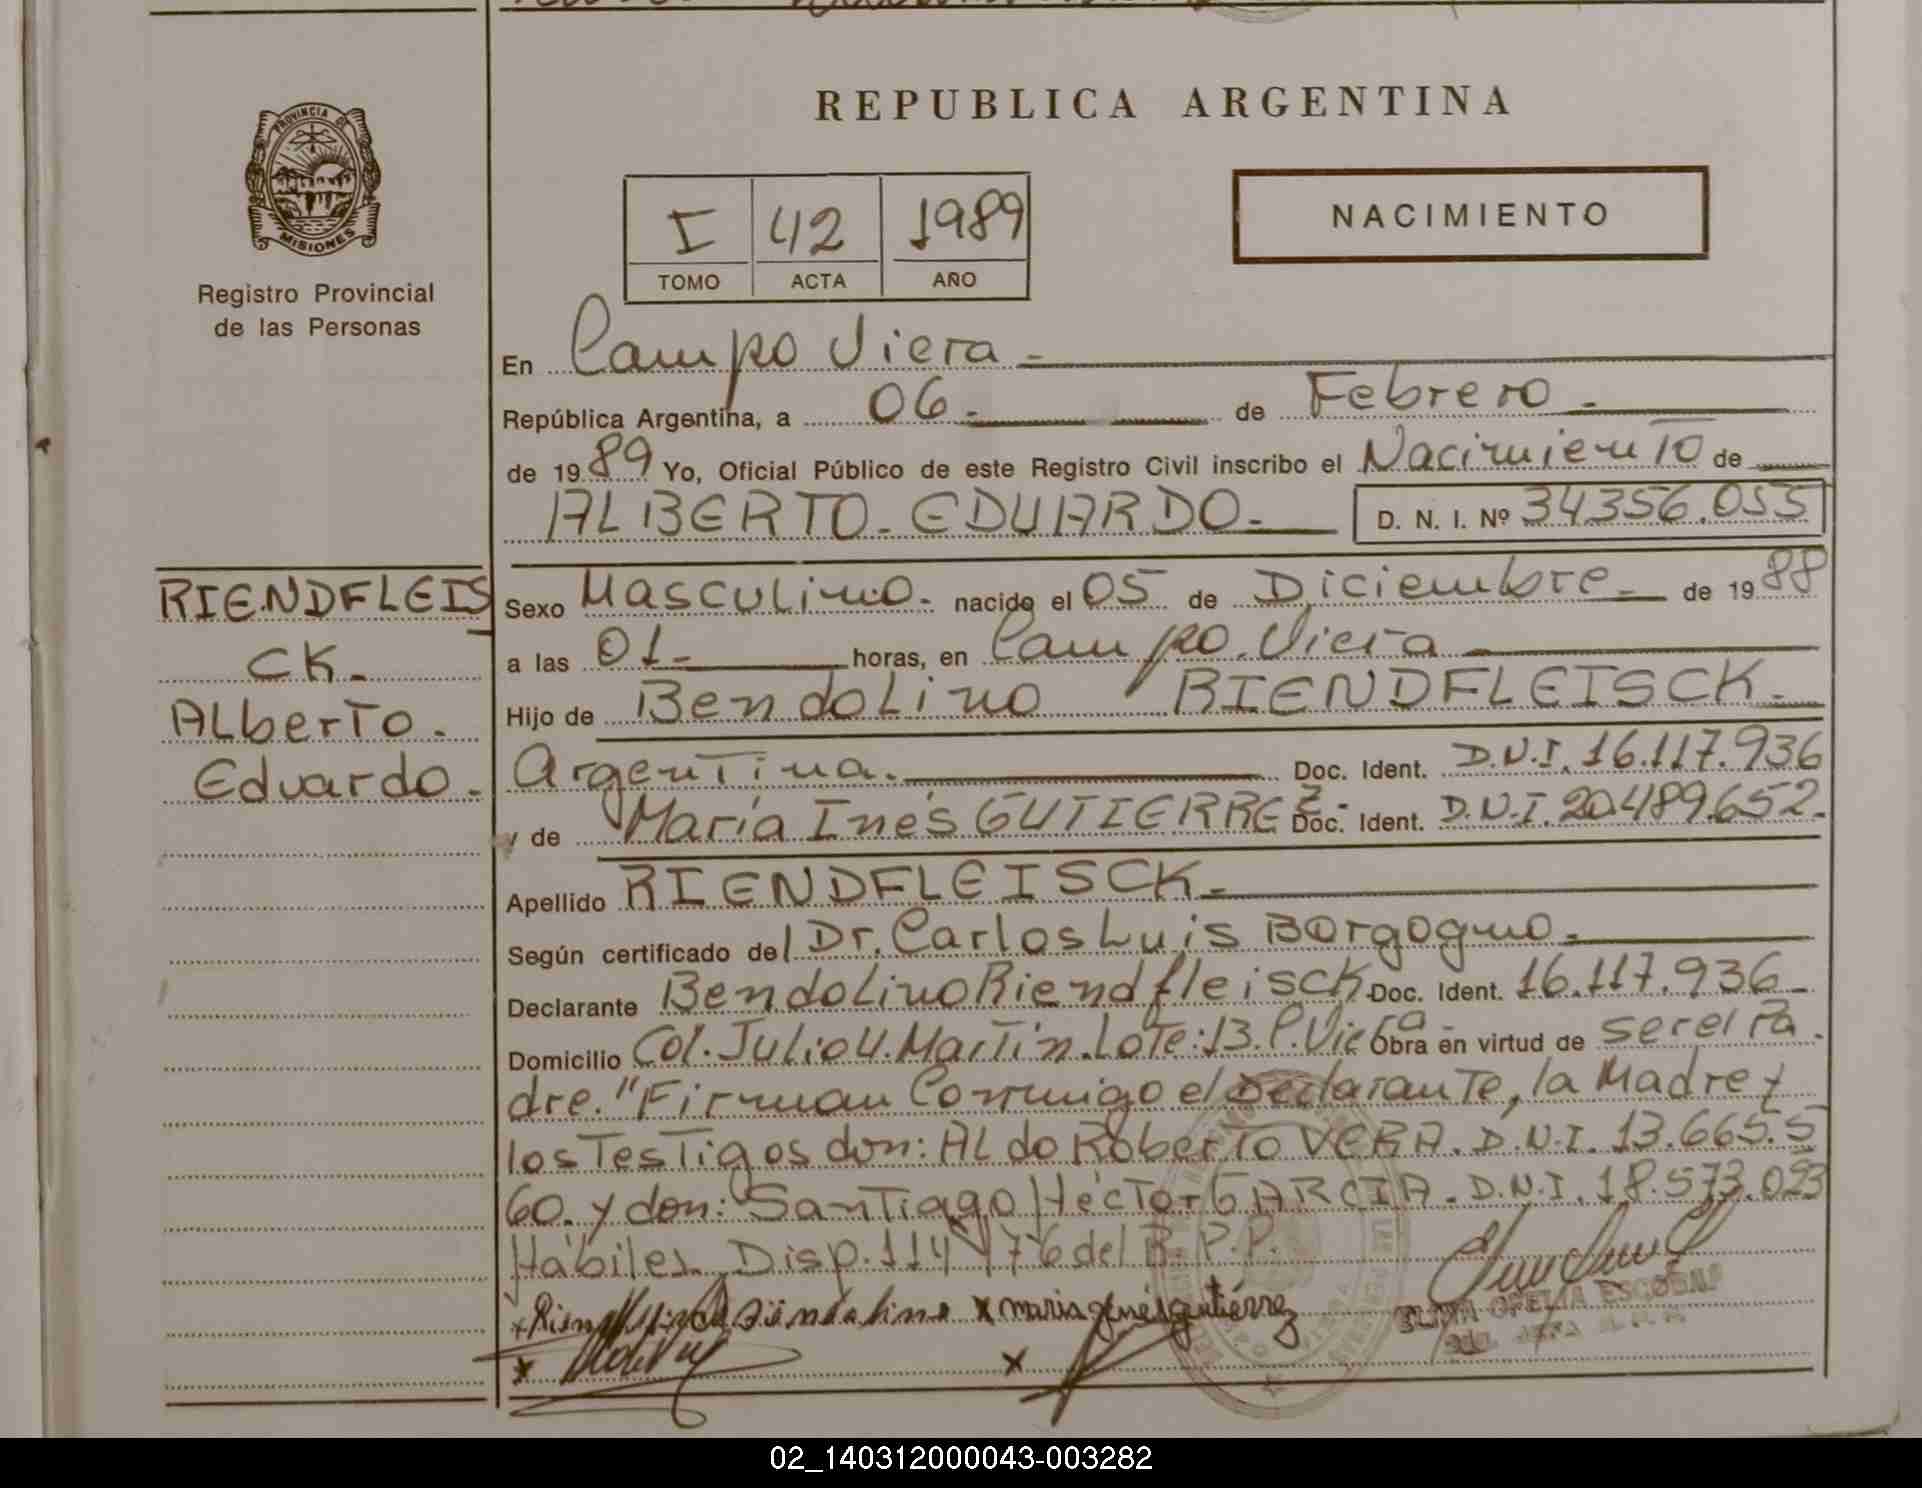 REPUBLICA ARGENTINA
PROVINCIA DE
MISIONES
Registro Provincial
de las Personas
I 42 1989
TOMO ACTA AÑO
NACIMIENTO
En Campo Viera -
República Argentina, a 06 - de Febrero -
de 1989 Yo, Oficial Público de este Registro Civil inscribo el Nacimiento de
ALBERTO - EDUARDO - D. N. I. Nº 34356.055
RIENDFLEIS
CK -
Alberto -
Eduardo -
Sexo Masculino - nacido el 05 de Diciembre - de 1988
a las 01 - horas, en Campo Viera
Hijo de Bendolino RIENDFLEISCK -
Argentina. Doc. Ident. D.N.I. 16.117.936
y de María Inés GUTIERREZ - Doc. Ident. D.N.I. 20489.652 -
Apellido RIENDFLEISCK -
Según certificado del Dr. Carlos Luis Borgogno -
Declarante Bendolino Riendfleisck Doc. Ident. 16.117.936 -
Domicilio Col. Julio U. Martin. Lote: 13. C. Viera - Obra en virtud de ser el Pa
dre. "Firman Conmigo el Declarante, la Madre y
los Testigos don: Aldo Roberto VERA. D.N.I. 13.665.5
60. y don: Santiago Héctor GARCIA. D.N.I. 18.573.093
Hábiles. Disp. 114/76 del R.P.P.
x x maria ines gutiérrez
OFELIA ESCOBAR
x x
02_140312000043-003282